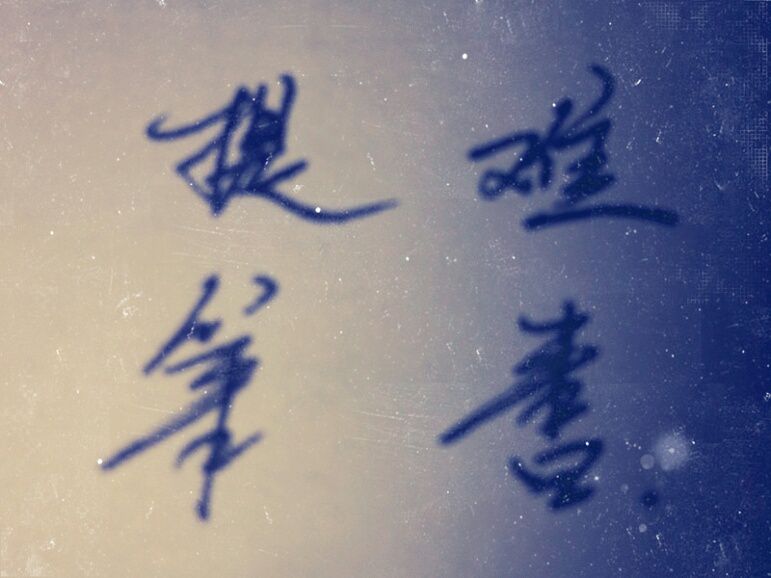 提筆
难書.